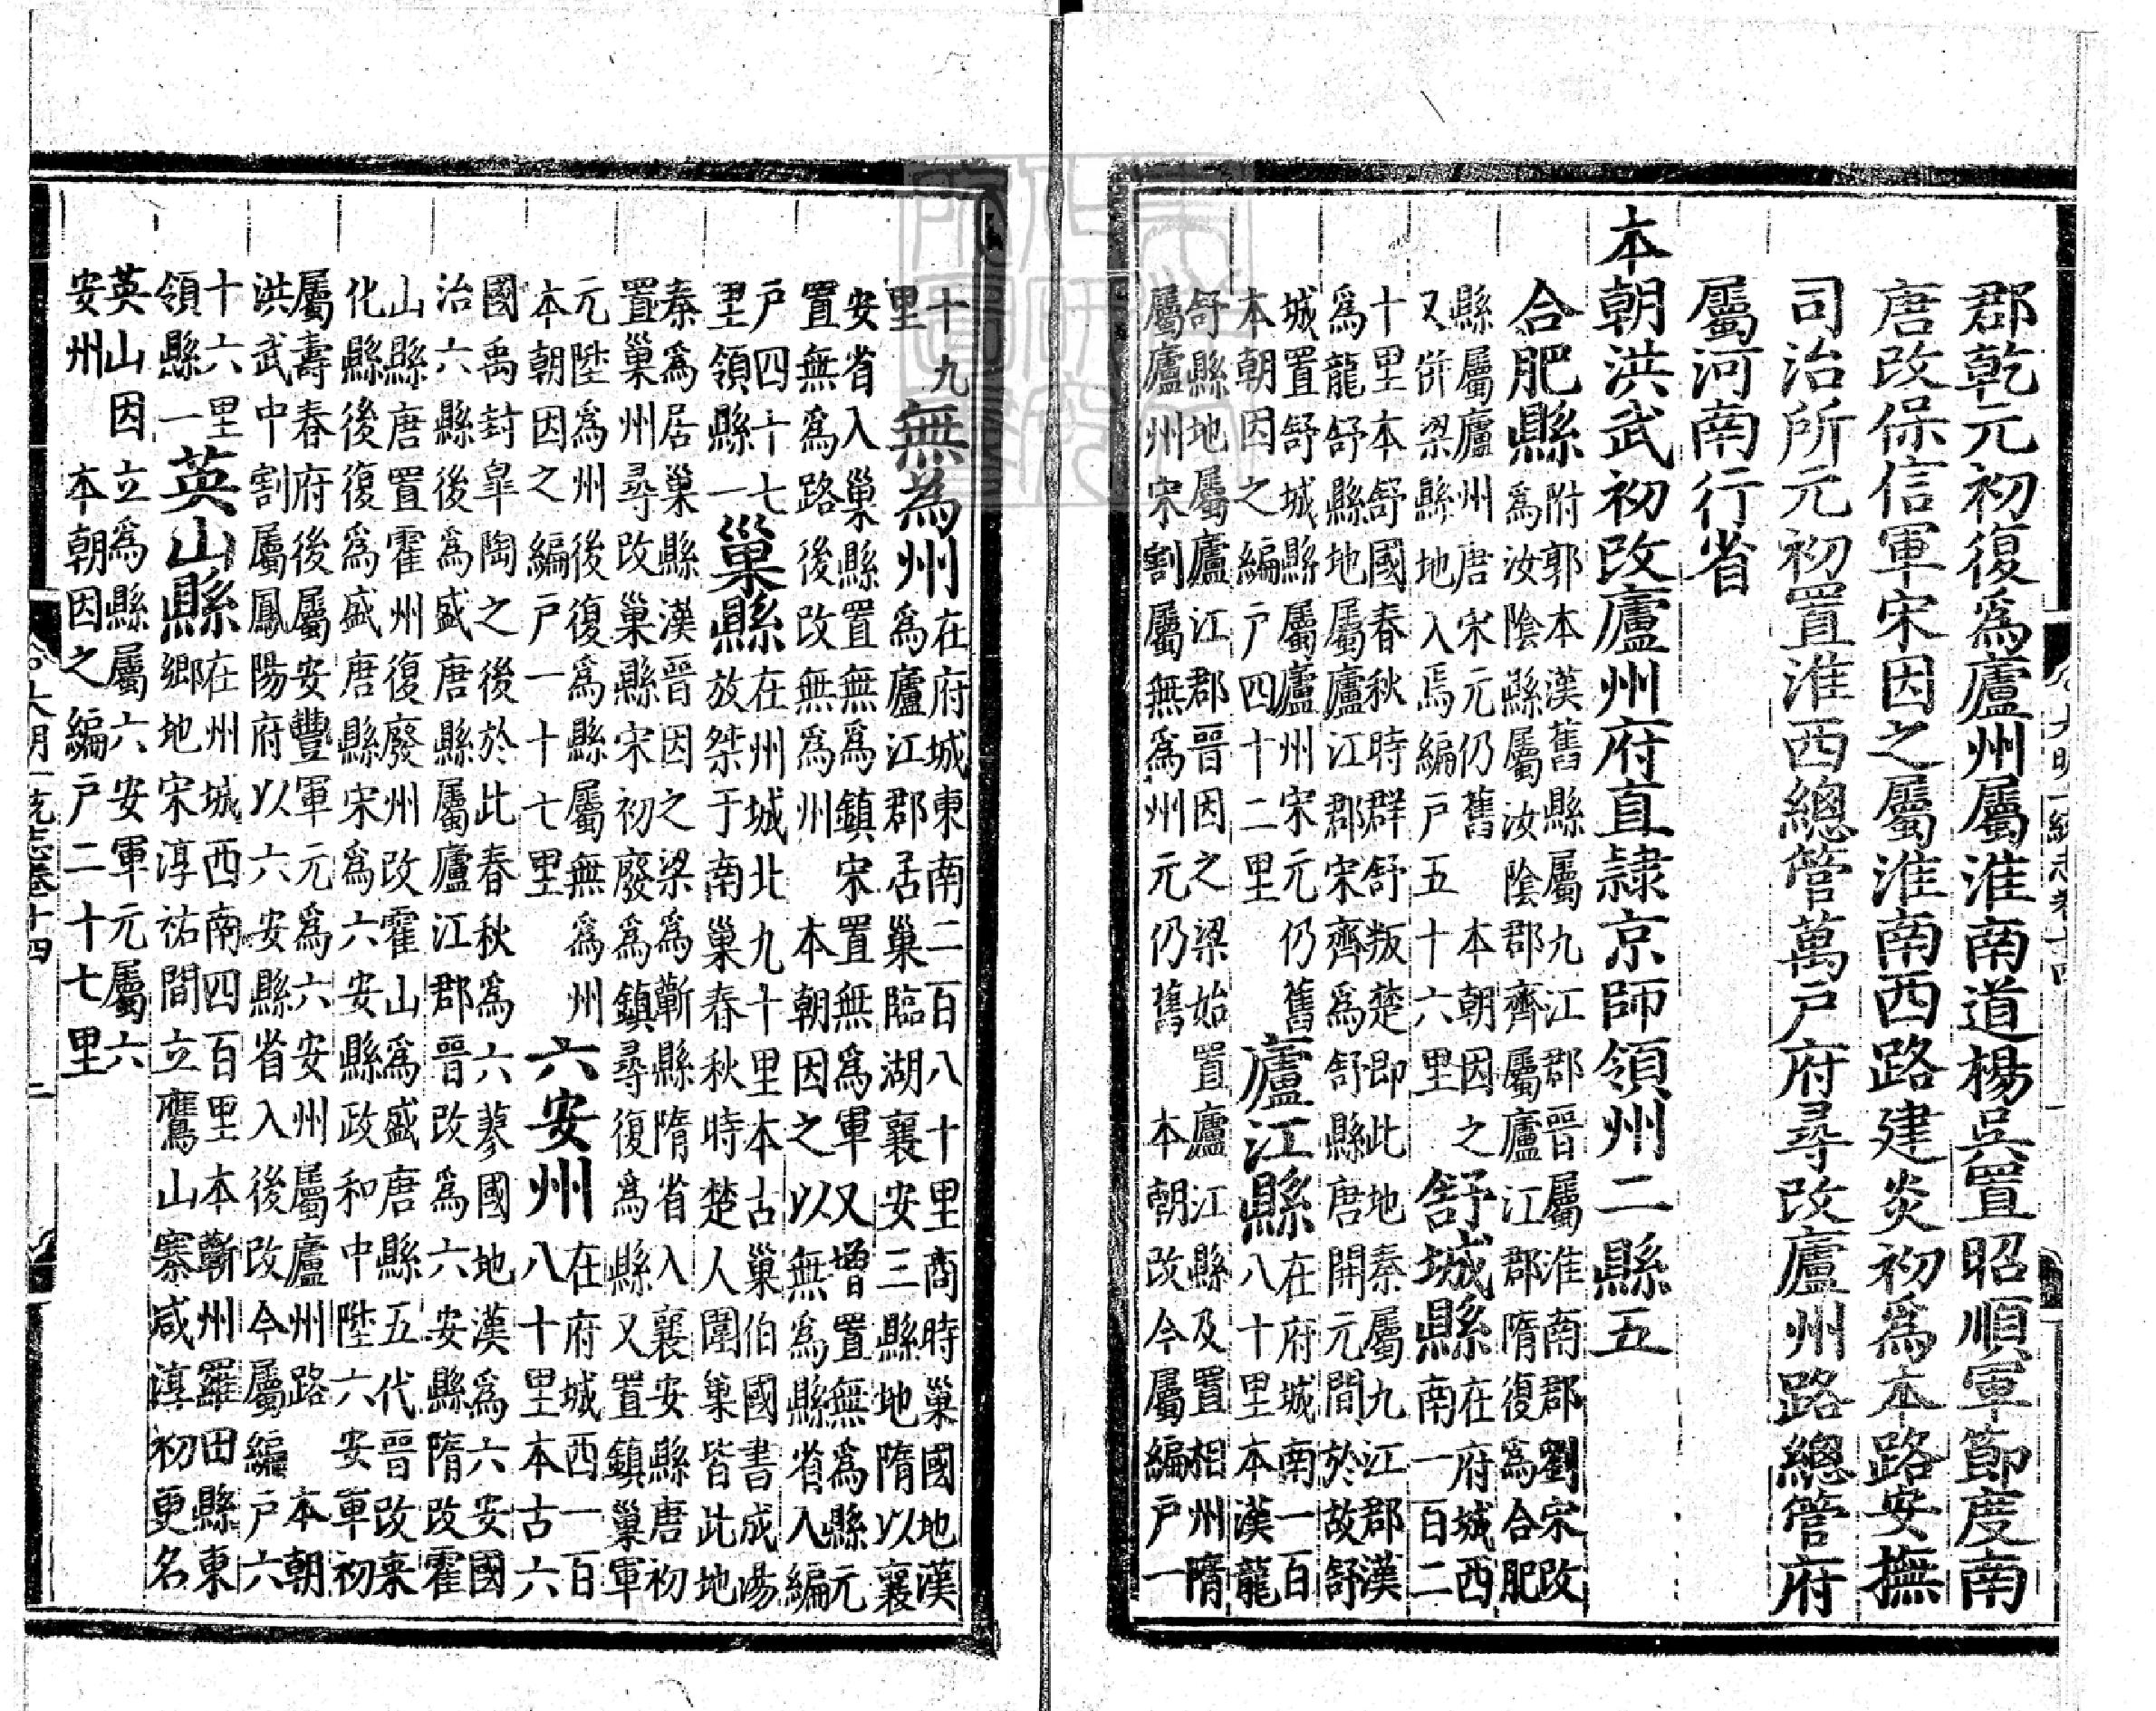 郡乾元初復爲廬州屬淮南道楊吳置昭順軍節度南
唐改保信軍宋因之屬淮南西路建炎初爲本路安撫
司治所元初置淮西總管萬戶府尋改廬州路總管府
屬河南行省
本朝洪武初改廬州府直隷京師領州二縣五
合肥縣
附郭本漢舊縣屬九江郡晋屬淮南郡劉宋改
爲汝陰縣屬汝陰郡齊屬廬江郡隋復爲合肥
縣屬廬州唐宋元仍舊 本朝因之
又併梁縣地入焉編戶五十六里
舒城縣
在府城西
南一百二
十里本舒國春秋時群舒叛楚即此地秦屬九江郡漢
爲龍舒縣地屬廬江郡宋齊爲舒縣唐開元間於故舒
城置舒城縣屬廬州宋元仍舊
本朝因之編戶四十二里
廬江縣
在府城南一百
八十里本漢龍
舒縣地屬廬江郡晋因之梁始置廬江縣及置相州隋
屬廬州宋割屬無爲州元仍舊 本朝改今屬編戶一
十九
里
無爲州
在府城東南二百八十里商時巢國地漢
爲廬江郡居巢臨湖襄安三縣地隋以襄
安省入巢縣置無爲鎮宋置無爲軍又增置無爲縣元
置無爲路後改無爲州 本朝因之以無爲縣省入編
戶四十七
里領縣一
巢縣
在州城北九十里本古巢伯國書成湯
放桀于南巢春秋時楚人圍巢皆此地
秦爲居巢縣漢晋因之梁爲蘄縣隋省入襄安縣唐初
置巢州尋改巢縣宋初廢爲鎮尋復爲縣又置鎮巢軍
元陞爲州後復爲縣屬無爲州
本朝因之編戶一十七里
六安州
在府城西一百
八十里本古六
國禹封皐陶之後於此春秋爲六蓼國地漢爲六安國
治六縣後爲盛唐縣屬廬江郡晋改爲六安縣隋改霍
山縣唐置霍州復廢州改霍山爲盛唐縣五代晋改来
化縣後復爲盛唐縣宋爲六安縣政和中陞六安軍初
屬壽春府後屬安豐軍元爲六安州屬廬州路 本朝
洪武中割屬鳳陽府以六安縣省入後改今屬編戶六
十六里
領縣一
英山縣
在州城西南四百里本蘄州羅田縣東
鄉地宋淳祐間立鷹山寨咸淳初更名
英山因立爲縣屬六安軍元屬六
安州 本朝因之編戶二十七里
大明一統志卷十四
二